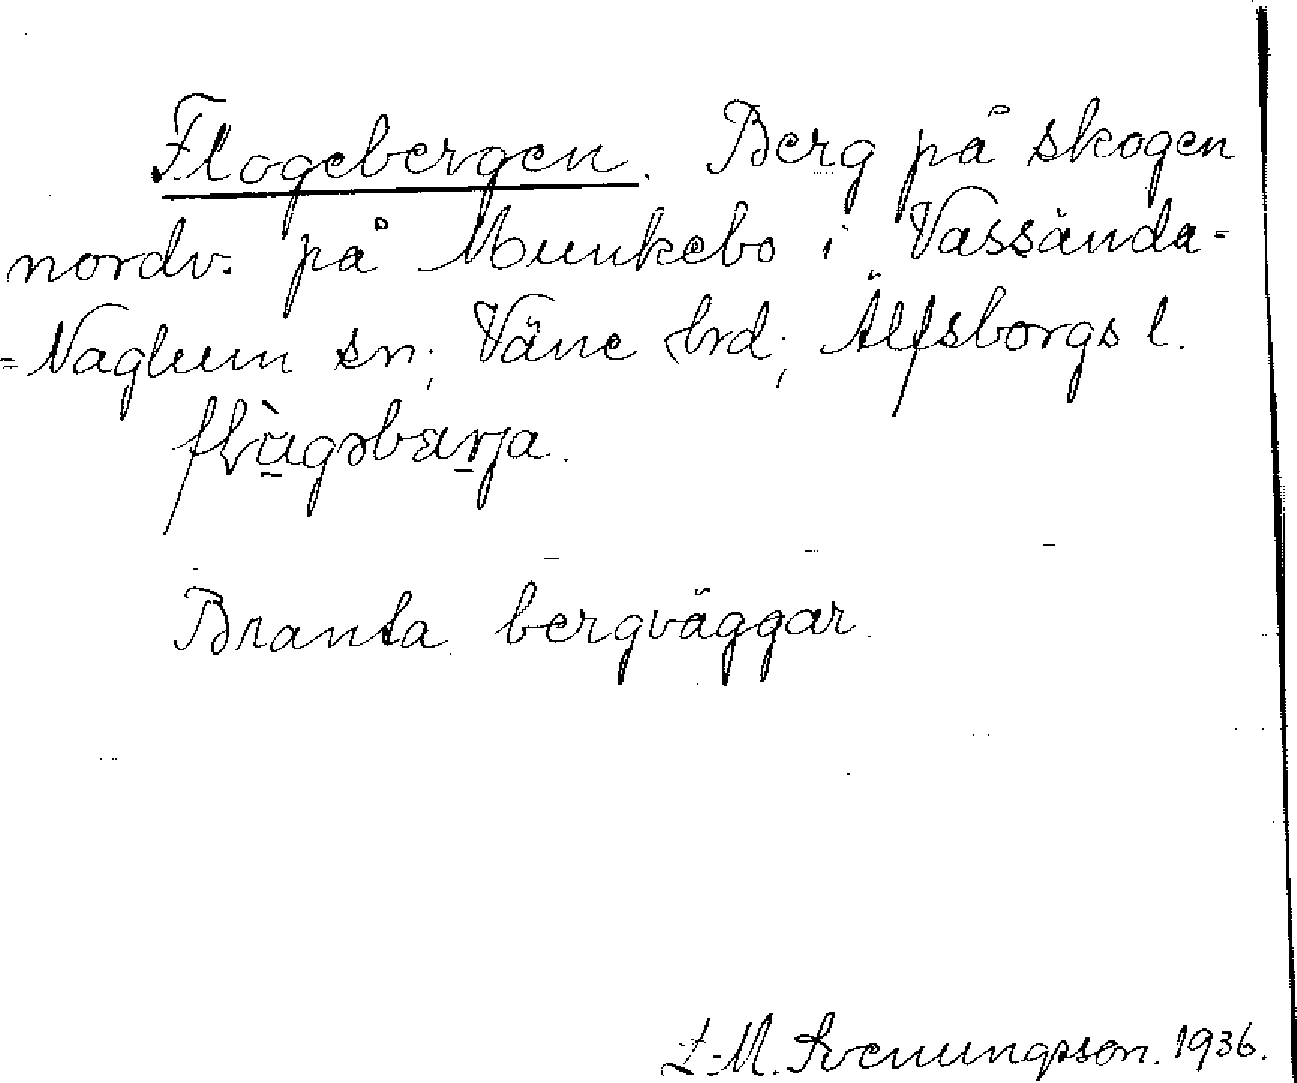 Flogebergen. Berg på skogen
nordv. på Munkebo i Vassända-
=Naglum sn; Väne hrd; Älfsborgs l.
flùgəbærja.
Branta bergväggar.
L-M. Svenungsson. 1936.